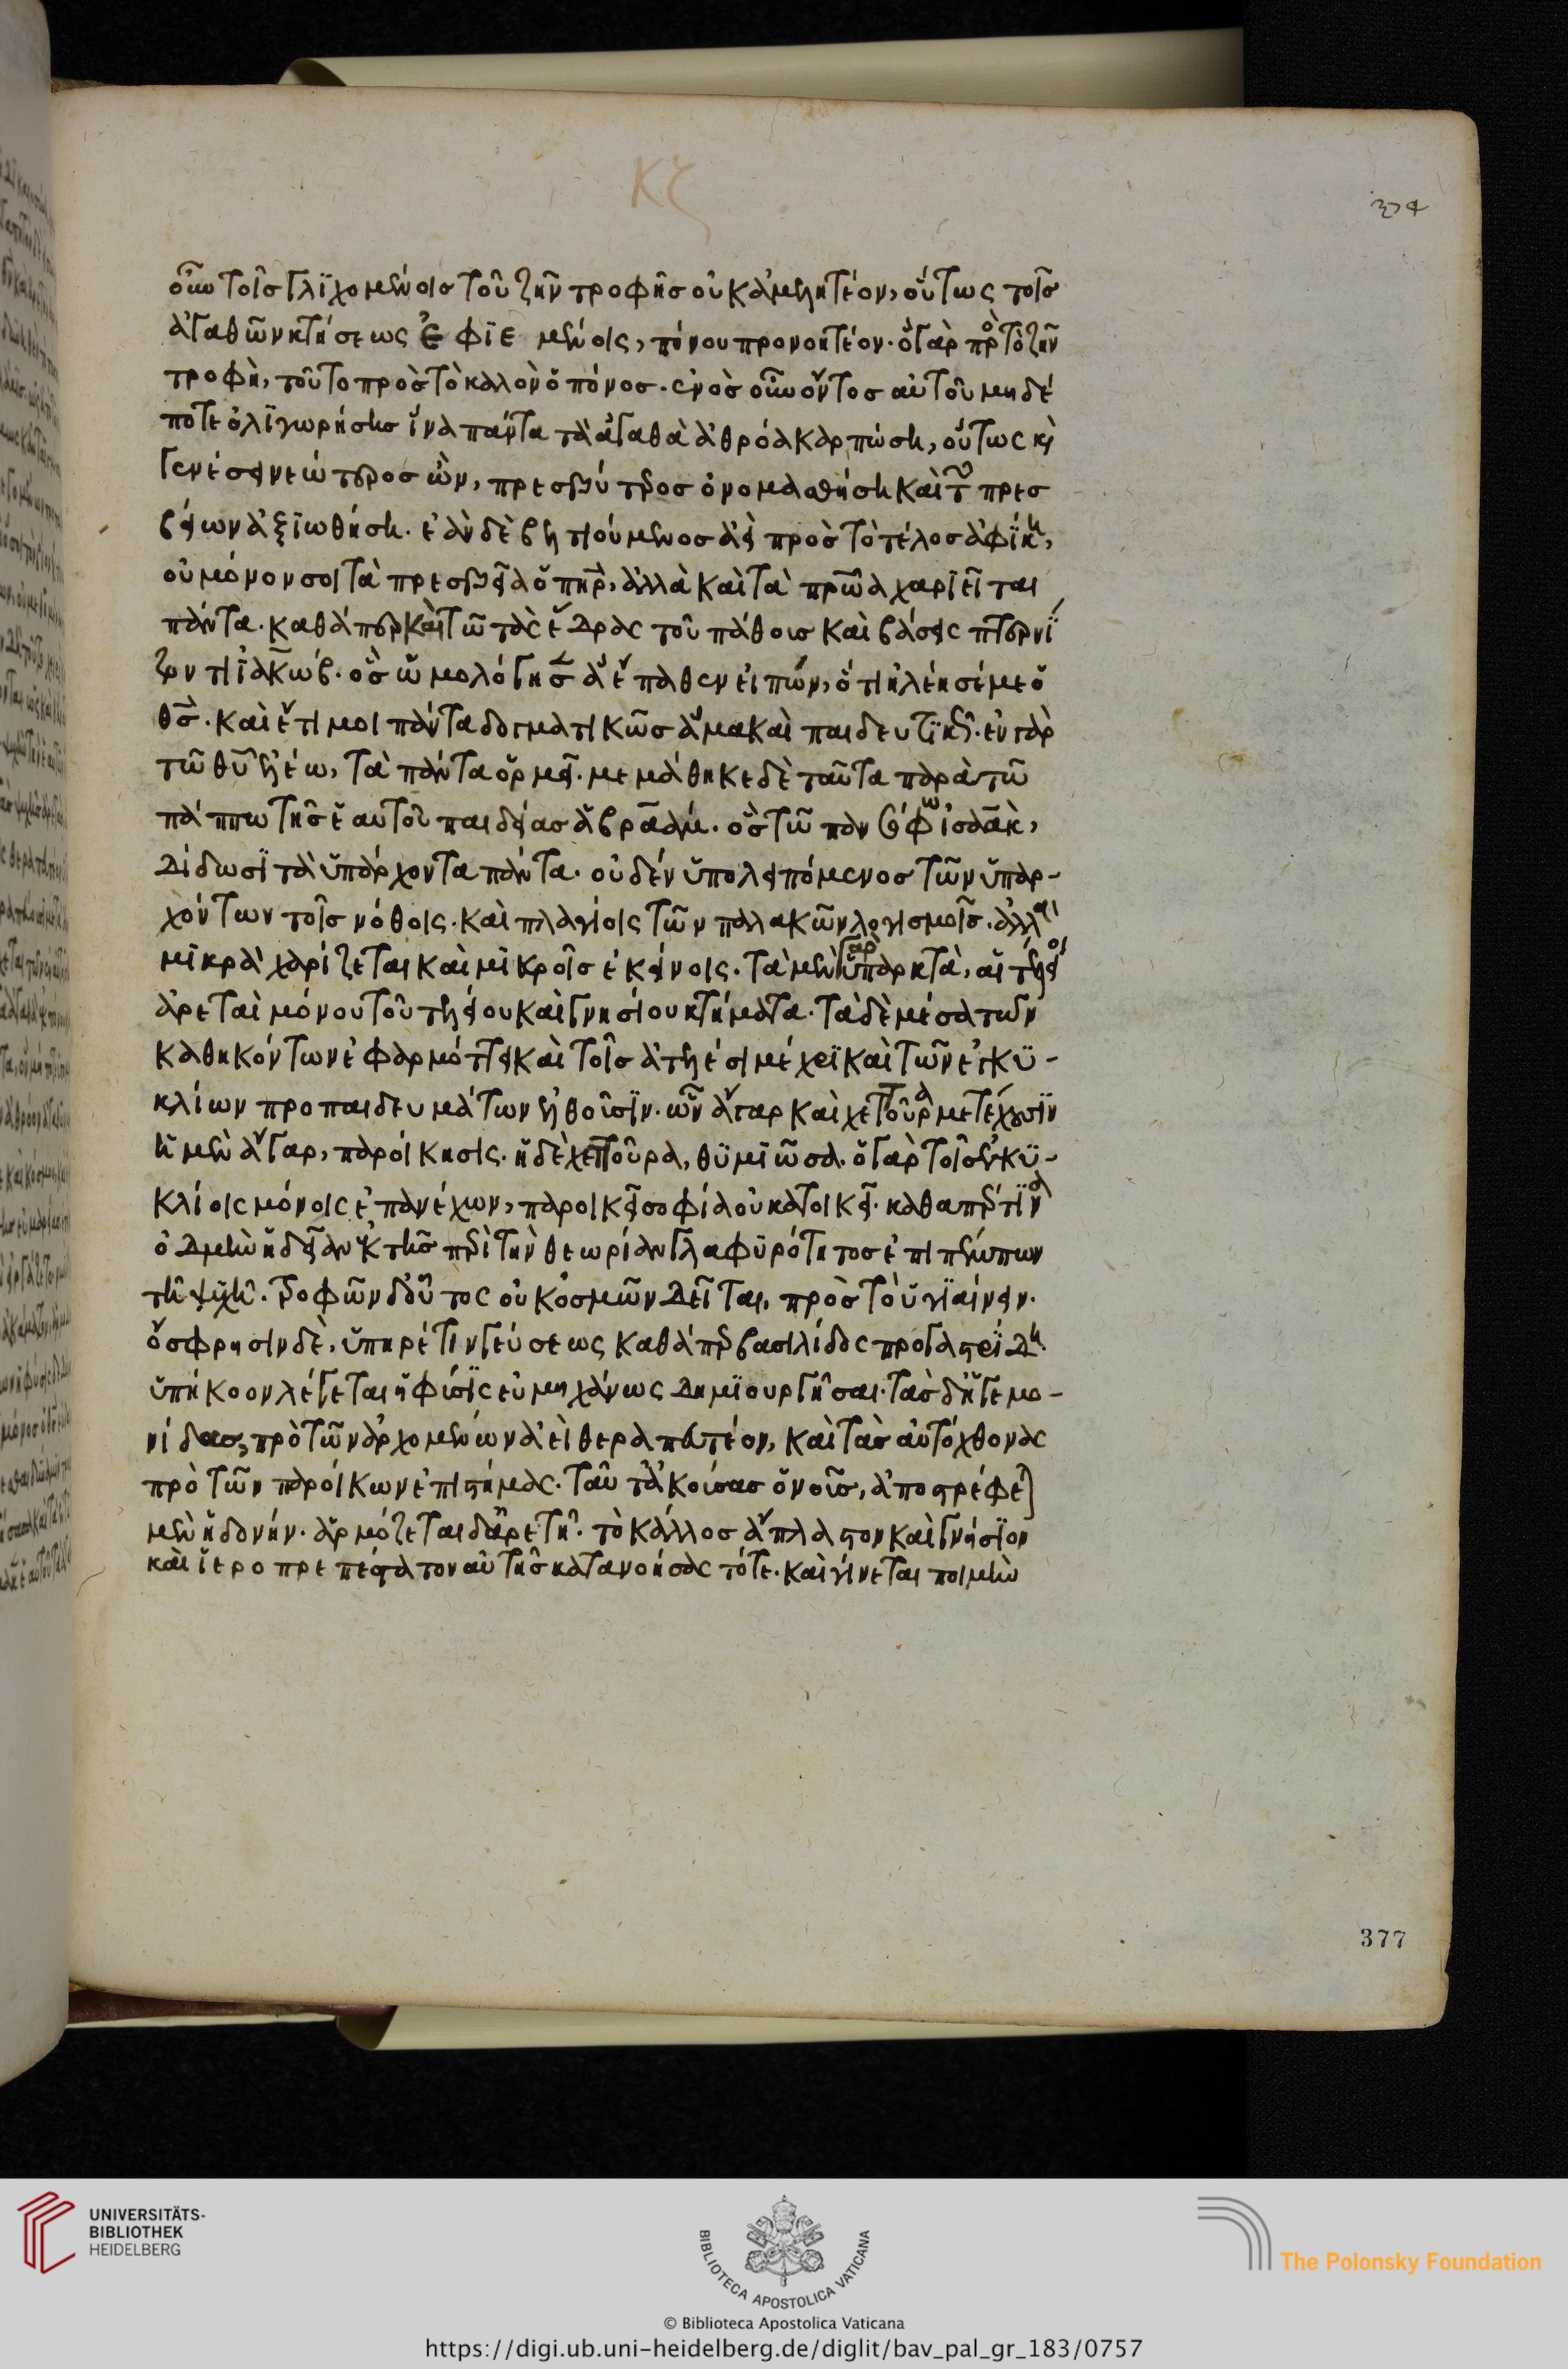 κζ
374
οὖν τοῖς γλιχομένοις τοῦ ζῆν τροφῆς οὐκ ἀμελητέον, οὕτως τοῖς
ἀγαθῶν κτήσεως ἐφιεμένοις, πόνου προνοητέον· ὃ γὰρ πρὸς τὸ ζῆν
τροφὴ, τοῦτο πρὸς τὸ καλὸν ὁ πόνος. ἑνὸς οὖν ὄντος αὐτοῦ μηδέ
ποτε ὀλιγωρήσῃς ἵνα πάντα τὰ ἀγαθὰ ἀθρόα καρπώσῃ, οὕτως καὶ
γενέσει νεώτερος ὢν, πρεσβύτερος ὀνομασθήσῃ καὶ τῶν πρεσ
βείων ἀξιωθήσῃ. ἐὰν δὲ βελτιούμενος ἀεὶ πρὸς τὸ τέλος ἀφίκῃ,
οὐ μόνον σοι τὰ πρεσβεῖα ὁ πατὴρ, ἀλλὰ καὶ τὰ πατρῷα χαριεῖται
πάντα. καθάπερ καὶ τῷ τὰς ἕδρας τοῦ πάθους καὶ βάσεις πτερνί
ζοντι ἰακώβ. ὃς ὡμολόγησεν ἃ ἔπαθεν εἰπών, ὅτι ἠλέησέ με ὁ
θς. καὶ ἔστι μοι πάντα δογματικῶς ἅμα καὶ παιδευτικῶς. ἐν γὰρ
τῷ θυ ἐλέῳ, τὰ πάντα ὁρμεῖ. μεμάθηκε δὲ ταῦτα παρὰ τῷ
πάππῳ τῆς ἑαυτοῦ παιδείας ἁβραάμ. ὃς τῷ πανσόφῳ ἰσαάκ,
δίδωσι τὰ ὑπάρχοντα πάντα. οὐδέν ὑπολειπόμενος τῶν ὑπαρ-
χόντων τοῖς νόθοις. καὶ πλαγίοις τῶν παλακῶν λογισμοῖς. ἀλλὰ
μικρὰ χαρίζεται καὶ μικροῖς ἐκείνοις. τὰ μὲν γὰρ ὑπαρκτὰ, αἱ τέλειοι
ἀρεταὶ μόνου τοῦ τελείου καὶ γνησίου κτήματα. τὰ δὲ μέσα τῶν
καθηκόντων ἐφαρμόττει καὶ τοῖς ἀτελέσι μέχρι καὶ τῶν ἐγκυ-
κλίων προπαιδευμάτων ἐλθοῦσιν. ὧν ἄγαρ καὶ χεττοῦρα μετέχουσιν
ἡ μὲν ἄγαρ, παροίκησις. ἡ δὲ χεττοῦρα, θυμιῶσα. ὁ γὰρ τοῖς ἐγκυ-
κλίοις μόνοις ἐπανέχων, παροικεῖ σοφίᾳ οὐ κατοικεῖ. καθάπερ τινὰ
ὀδμὴν ἡδεῖαν ἐκ τῆς περὶ τὴν θεωρίαν γλαφυρότητος ἐπιπέμπων
τῇ ψυχῇ. τροφῶν δ' οὗτος οὐκ ὀσμῶν δεῖται, πρὸς τὸ ὑγιαίνειν.
ὄσφρησιν δὲ, ὑπηρέτιν γεύσεως καθάπερ βασιλίδος προγάστριδα
ὑπήκοον λέγεται ἡ φύσις εὐμηχάνως δημιουργῆσαι. τὰς δ' ἡγεμο-
νίδας πρὸ τῶν ἀρχομένων ἀεὶ θεραπευτέον, καὶ τὰς αὐτόχθονας
πρὸ τῶν παροίκων ἐπιστήμας. ταῦτ' ἀκούσας ὁ νοῦς, ἀποστρέφεται
μὲν ἡδονήν. ἁρμόζεται δ' ἀρετῇ. τὸ κάλλος ἄπλαστον καὶ γνήσιον
καὶ ἱεροπρεπέστατον αὐτῆς κατανοήσας τότε. καὶ γίνεται ποιμὴν
377
UNIVERSITÄTS-
BIBLIOTHEK
HEIDELBERG
BIBLIOTECA APOSTOLICA VATICANA
The Polonsky Foundation
© Biblioteca Apostolica Vaticana
https://digi.ub.uni-heidelberg.de/diglit/bav_pal_gr_183/0757